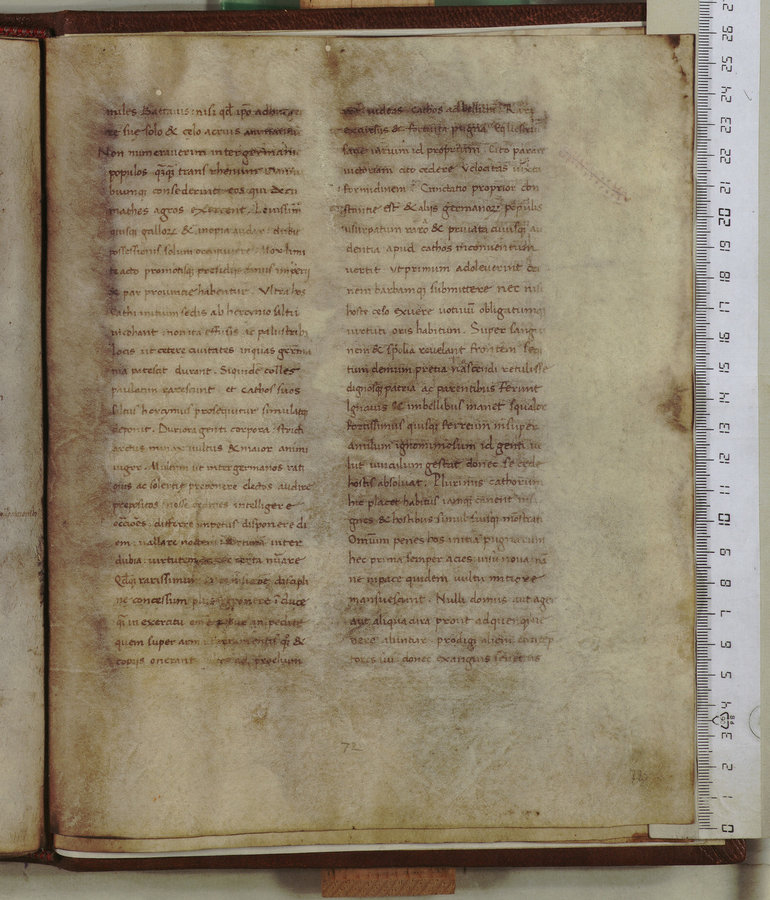 miles Battauis: nisi qd ipo adhuc
re sue solo & celo acrius animantur
Non numerauerim inter germanie
populos qqꝫ trans rhenum danu
biumqꝫ consederint eos qui decu
mathes agros exercent. Leuissim
quisqꝫ gallorꝫ & inopia audax: dubie
possessionis solum occupauere. Mox limi
te acto promotisqꝫ presidijs sinus imperij
& pars prouincie habentur. Vltra hos
Cathi initium sedis ab hercynio saltu
incohant: non ita effusis ac palustribꝰ
locis ut cetere ciuitates in quas germa
nia patescit durant. Siquidem colles
paulatim rarescunt. et Cathos suos
saltus hercynius prosequitur simulatqꝫ
deponit. Duriora genti corpora: stricti
artus minax uultus & maior animi
uigor. Multum ut inter germanos rati
onis ac solertie preponere electos audire
prepositos: nosse ordines intelligere
occasiones: differre impetus disponere di
em: uallare noctem: fortunam inter
dubia: uirtutem inter certa numerare
Qdqꝫ rarissimum discipli
ne concessum plus reponere in duce
q̄ in exercitu omne robur in pedite
quem super arma ferramentis qꝫ &
copijs onerant ad proelium
uideas Cathos ad bellum. Rari
excursus & fortuita pugna equestrium
sane uirium id proprium cito parare
uictoriam cito cedere uelocitas iuxta
formidinem: Cunctatio proprior con
stantie est & alijs germanorꝫ populis
usurpatum raro & priuata cuiusqꝫ au
dentia apud cathos in consensum
uertit ut primum adoleuerint cri
nem barbamqꝫ submittere nec nisi
hoste ceso exuere uotiuum obligatumqꝫ
uirtuti oris habitum. Super sangui
nem & spolia reuelant frontem seqꝫ
tum demum pretia nascendi retulisse
dignosqꝫ patria ac parentibus ferunt
Ignauis & imbellibus manet squalor
fortissimus quisqꝫ ferreum insuper
anulum ignominiosum id genti ue
lut uinculum gestat donec se cede
hostis absoluat. Plurimis cathorum
hic placet habitus iamqꝫ canent insi
gnes & hostibus simul suisqꝫ monstrati
Omnium penes hos initia pugnarum
hec prima semper acies uisu noua nā
ne in pace quidem uultu mitiore
mansuescunt. Nulli domus aut ager
aut aliqua cura prout ad quemqꝫ ue
nere aluntur. prodigi alieni contep
tores sui donec exanguis senectus
72